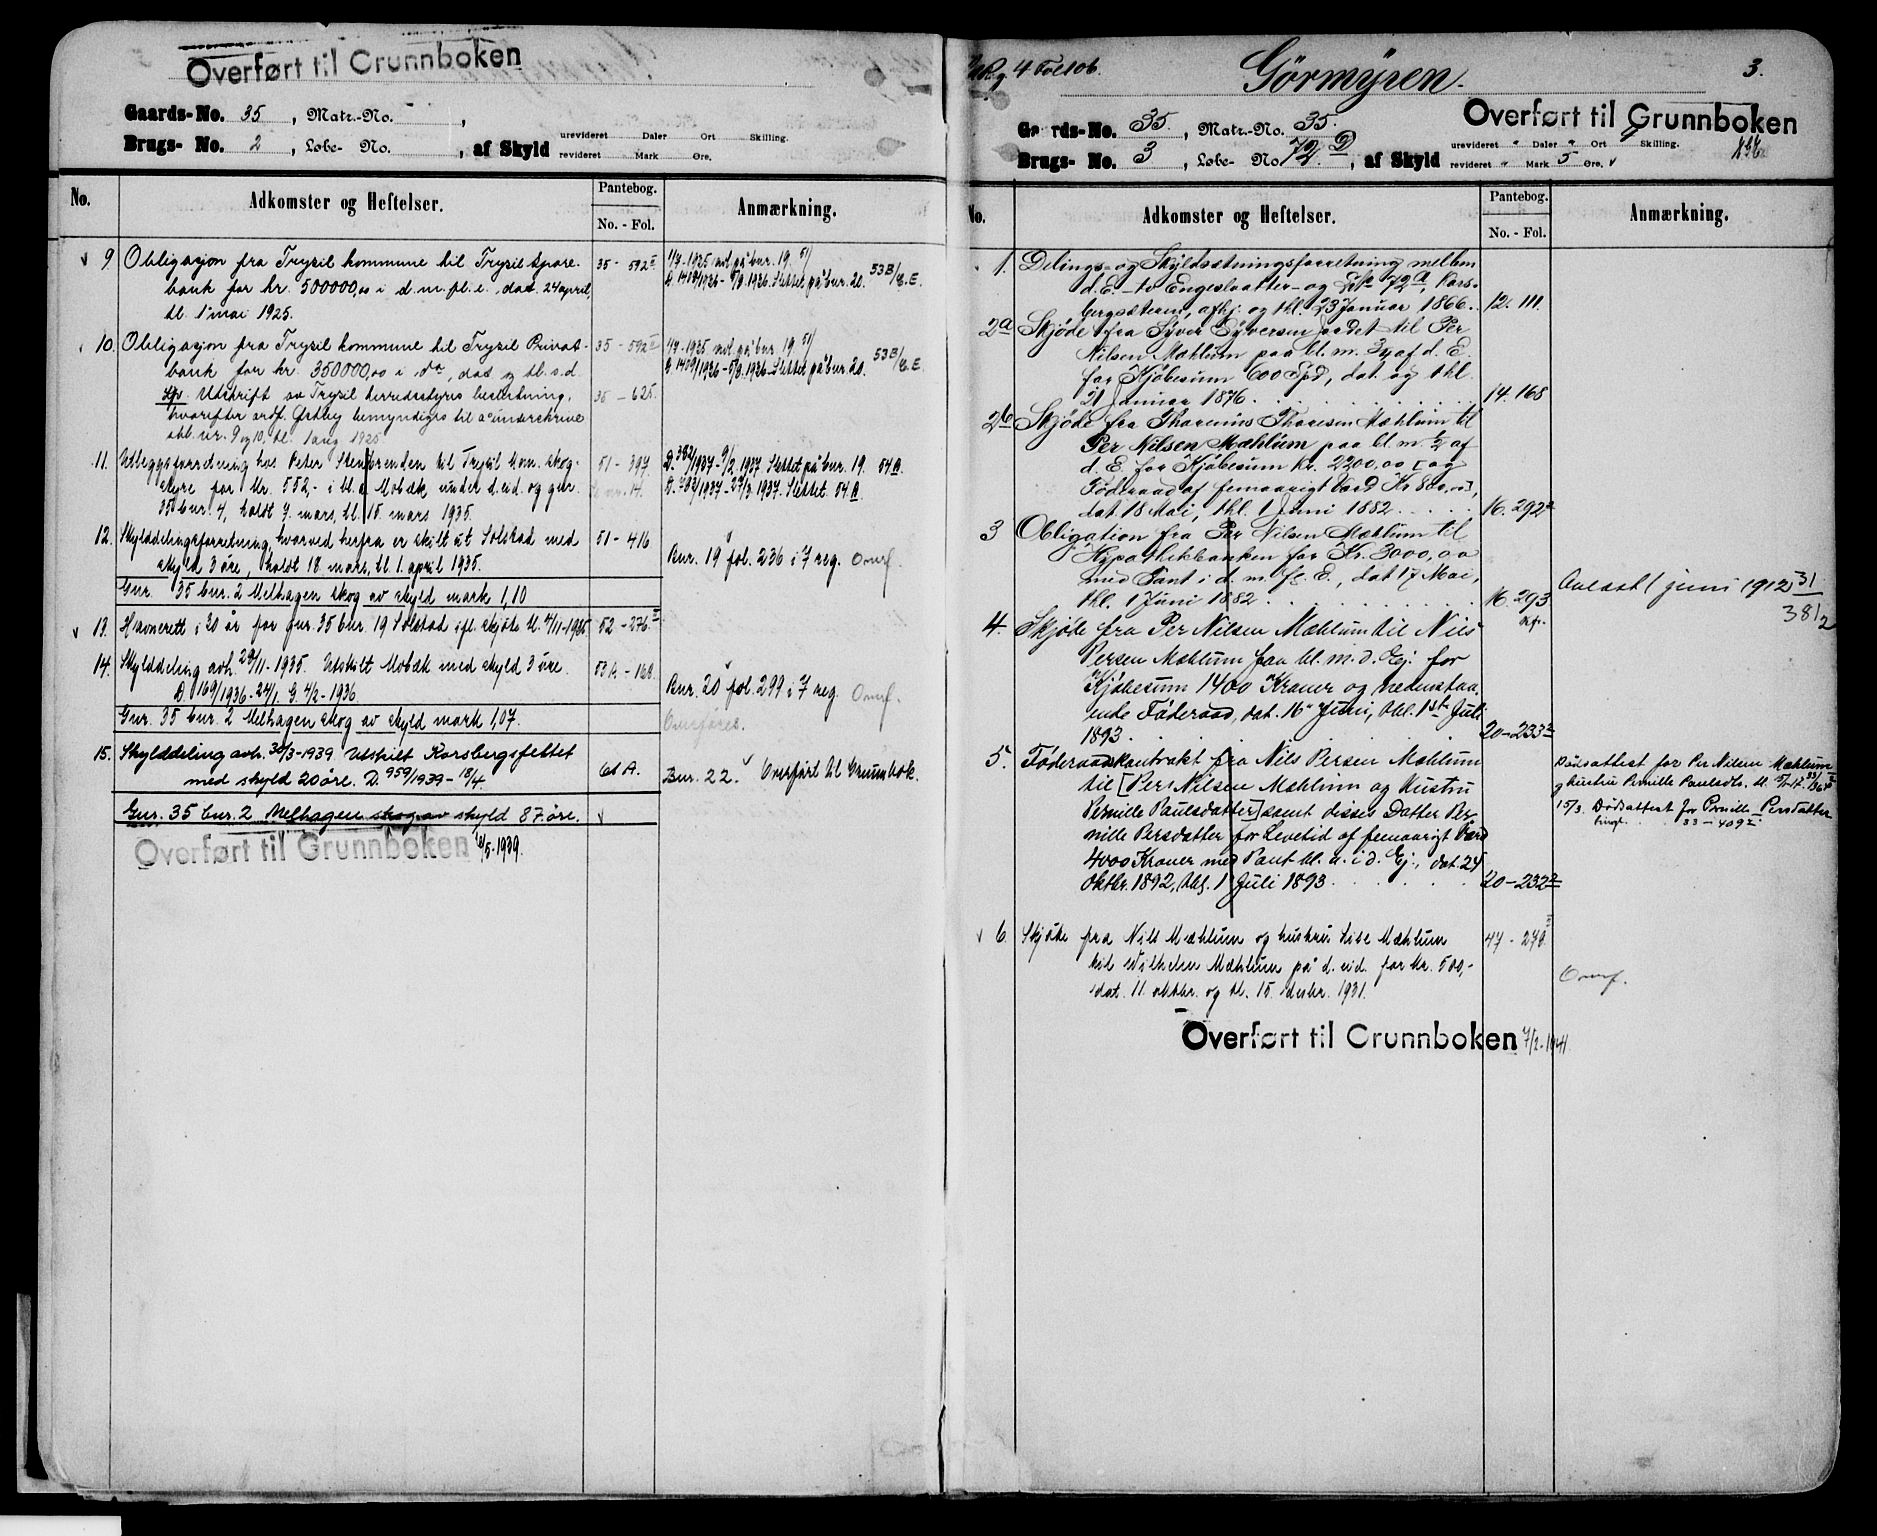 Overført til Grunnboken
Gaards-No. 35, Matr.-No. ,
Brugs-No. 2, Løbe-No. , af Skyld urevideret Daler Ort Skilling.
revideret Mark Øre.
No. Adkomster og Heftelser. Pantebog. No. - Fol. Anmærkning.
9. Obligasjon fra Trysil kommune til Trysil Spare- 35 - 592
bank for kr. 500000,00 i d. m. fl. e. dat. 24 april,
tl. 1 mai 1925.
10. Obligasjon fra Trysil kommune til Trysil Privat- 35 - 592
bank for kr. 350000,00 i do, dat. og tl. s.d.
Utskrift av Trysil herredsstyres beslutning, 35 - 625.
hvorefter ordf. Østby bemyndiges til å underskrive
obl. nr. 9 og 10, tl. 1 aug 1925
11. Utleggsforretning hos Peter Stenbrenden til Trysil kom. skog- 51 - 397
styre for kr. 552,- i bl. a Mobæk under d. eid. og gnr.
35 bnr. 4, holdt 7. mars, tl. 15. mars 1935.
12. Skylddelingsforretning, hvorved herfra er skilt ut Solstad med 51 - 416
skyld 3 øre, holdt 18. mars, tl. 1. april 1935. Bnr. 19 fol. 236 i 7 reg. Overf.
Gnr. 35 bnr. 2 Melhagen skog av skyld mark 1,10
13. Havnerett i 30 år for gnr. 35 bnr. 19 Solstad ifl. skjøte tl. 4/11-1935 52 - 276
14. Skylddeling avh. 29/11-1935. Utskilt Mobæk med skyld 3 øre. 53 - 168
D. 169/1936-24/1. G. 4/2-1936. Bnr. 20 fol. 299 i 7 reg. Overf.
Gnr. 35 bnr. 2 Melhagen skog av skyld mark 1,07. Overføres.
15. Skylddeling avh. 30/3-1939 Utskilt Korsbergsfeltet
med skyld 20 øre. D. 959/1939-18/4. 61 A. Bnr. 22. Overført til Grunnbok.
Gnr. 35 bnr. 2 Melhagen skog av skyld 87 øre.
Overført til Grunnboken /5-1939.
4 Fol 106. Görmÿren. 3.
Overført til Grunnboken
Gaards-No. 35, Matr.-No. 35.
Brugs-No. 3, Løbe-No 72 D, af Skyld urevideret " Daler " Ort Skilling.
revideret " Mark 5 Øre,
No. Adkomster og Heftelser. Pantebog. No. - Fol. Anmærkning.
1. Delings- og Skyldsætningsforretning mellem
d. E. - Engeslaatter - og 72 a, Kors-
bergsæteren, afhj. og thl. 23 Januar 1866. 12. 111.
2a Skjøde fra Syver Syversen Sadet til Per
Nilsen Mæhlum paa bl. m. af d. E.
for Kjøbesum 600 Spd, dat. og thl.
21 Januar 1876 14. 168
2b Skjøde fra Tharenius Tharesen Mæhlum til
Per Nilsen Mæhlum paa bl. m. 1/2 af
d. E. for Kjøbesum Kr. 2200,00 [og
Föderaad af femaarigt Værd Kr 800,00],
dat. 18 Mai, thl. 1 Juni 1882 16. 292
3 Obligation fra Per Nilsen Mæhlum til
Hypothekbanken for Kr. 3000,00
med Pant i d. m. fl. E., dat. 17 Mai,
thl. 1 Juni 1882 16. 293 Avlæst 1 juni 1912 31/381
4. Skjøde fra Per Nilsen Mæhlum til Nils
Persen Mæhlum paa bl. m. d. Ej. for
Kjøbesum 1400 Kroner og nedenstaa-
ende Föderaad, dat. 16 Juni, thl. 1ste Juli
1893 20-233
5. Föderaadskontrakt fra Nils Persen Mæhlum
til [Per Nilsen Mæhlum og Hustru
Pernille Paulsdatter] samt disses Datter Per-
nille Persdatter for Levetid af femaarigt Værd
4000 Kroner med Pant bl. a. i d. Ej., dat. 24
Oktbr. 1892, thl. 1 Juli 1893 20-232
Dödsattest for Per Nilsen Mæhlum
og hustru Pernille Paulsdtr.
15/3. Dødsattest for Pernille Persdatter
33-409
6. Skjøte fra Nils Mæhlum og hustru Lise Mæhlum 47 - 270
til Wilhelm Mæhlum på d. eid. for kr. 500,-
dat. 11. oktbr. og tl. 15. desbr. 1931. Overf.
Overført til Grunnboken 7/2-1941.